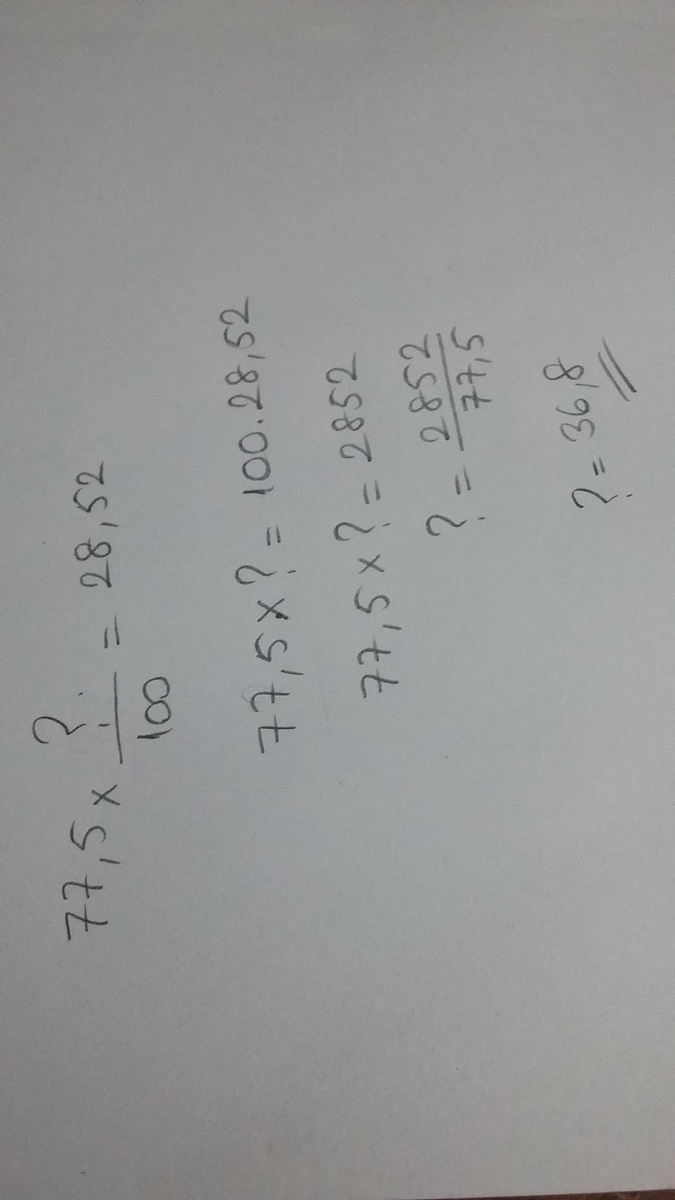 77,5 x ?/100 = 28,52
77,5 x ? = 100.28,52
77,5 x ? = 2852
? = 2852/77,5
? = 36,8